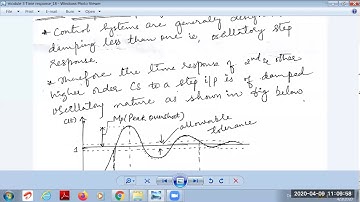 module-1Time response_18 - Windows Photo Viewer
* Control Systems are generally design
damping less than one ie, oscillatory step
response.
* Therefore the time response of 2nd & other
higher order CS to a step i/p is of damped
oscillatory nature as shown in fig below
c(t)
Mp (Peak overshoot)
allowable
tolerance
1
2020-04-09 11:09:58